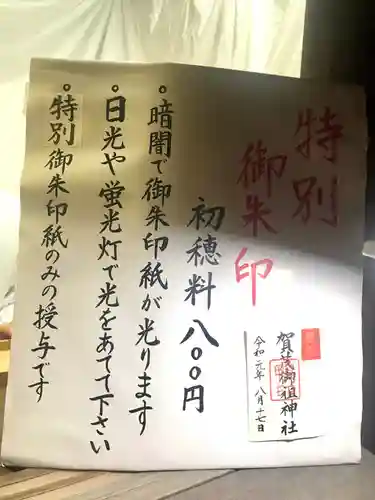 特別
御朱印
初穂料 八〇〇円
。暗闇で御朱印紙が光ります
。日光や蛍光灯で光をあてて下さい
。特別御朱印紙のみの授与です
賀茂御祖神社
令和元年 八月十七日